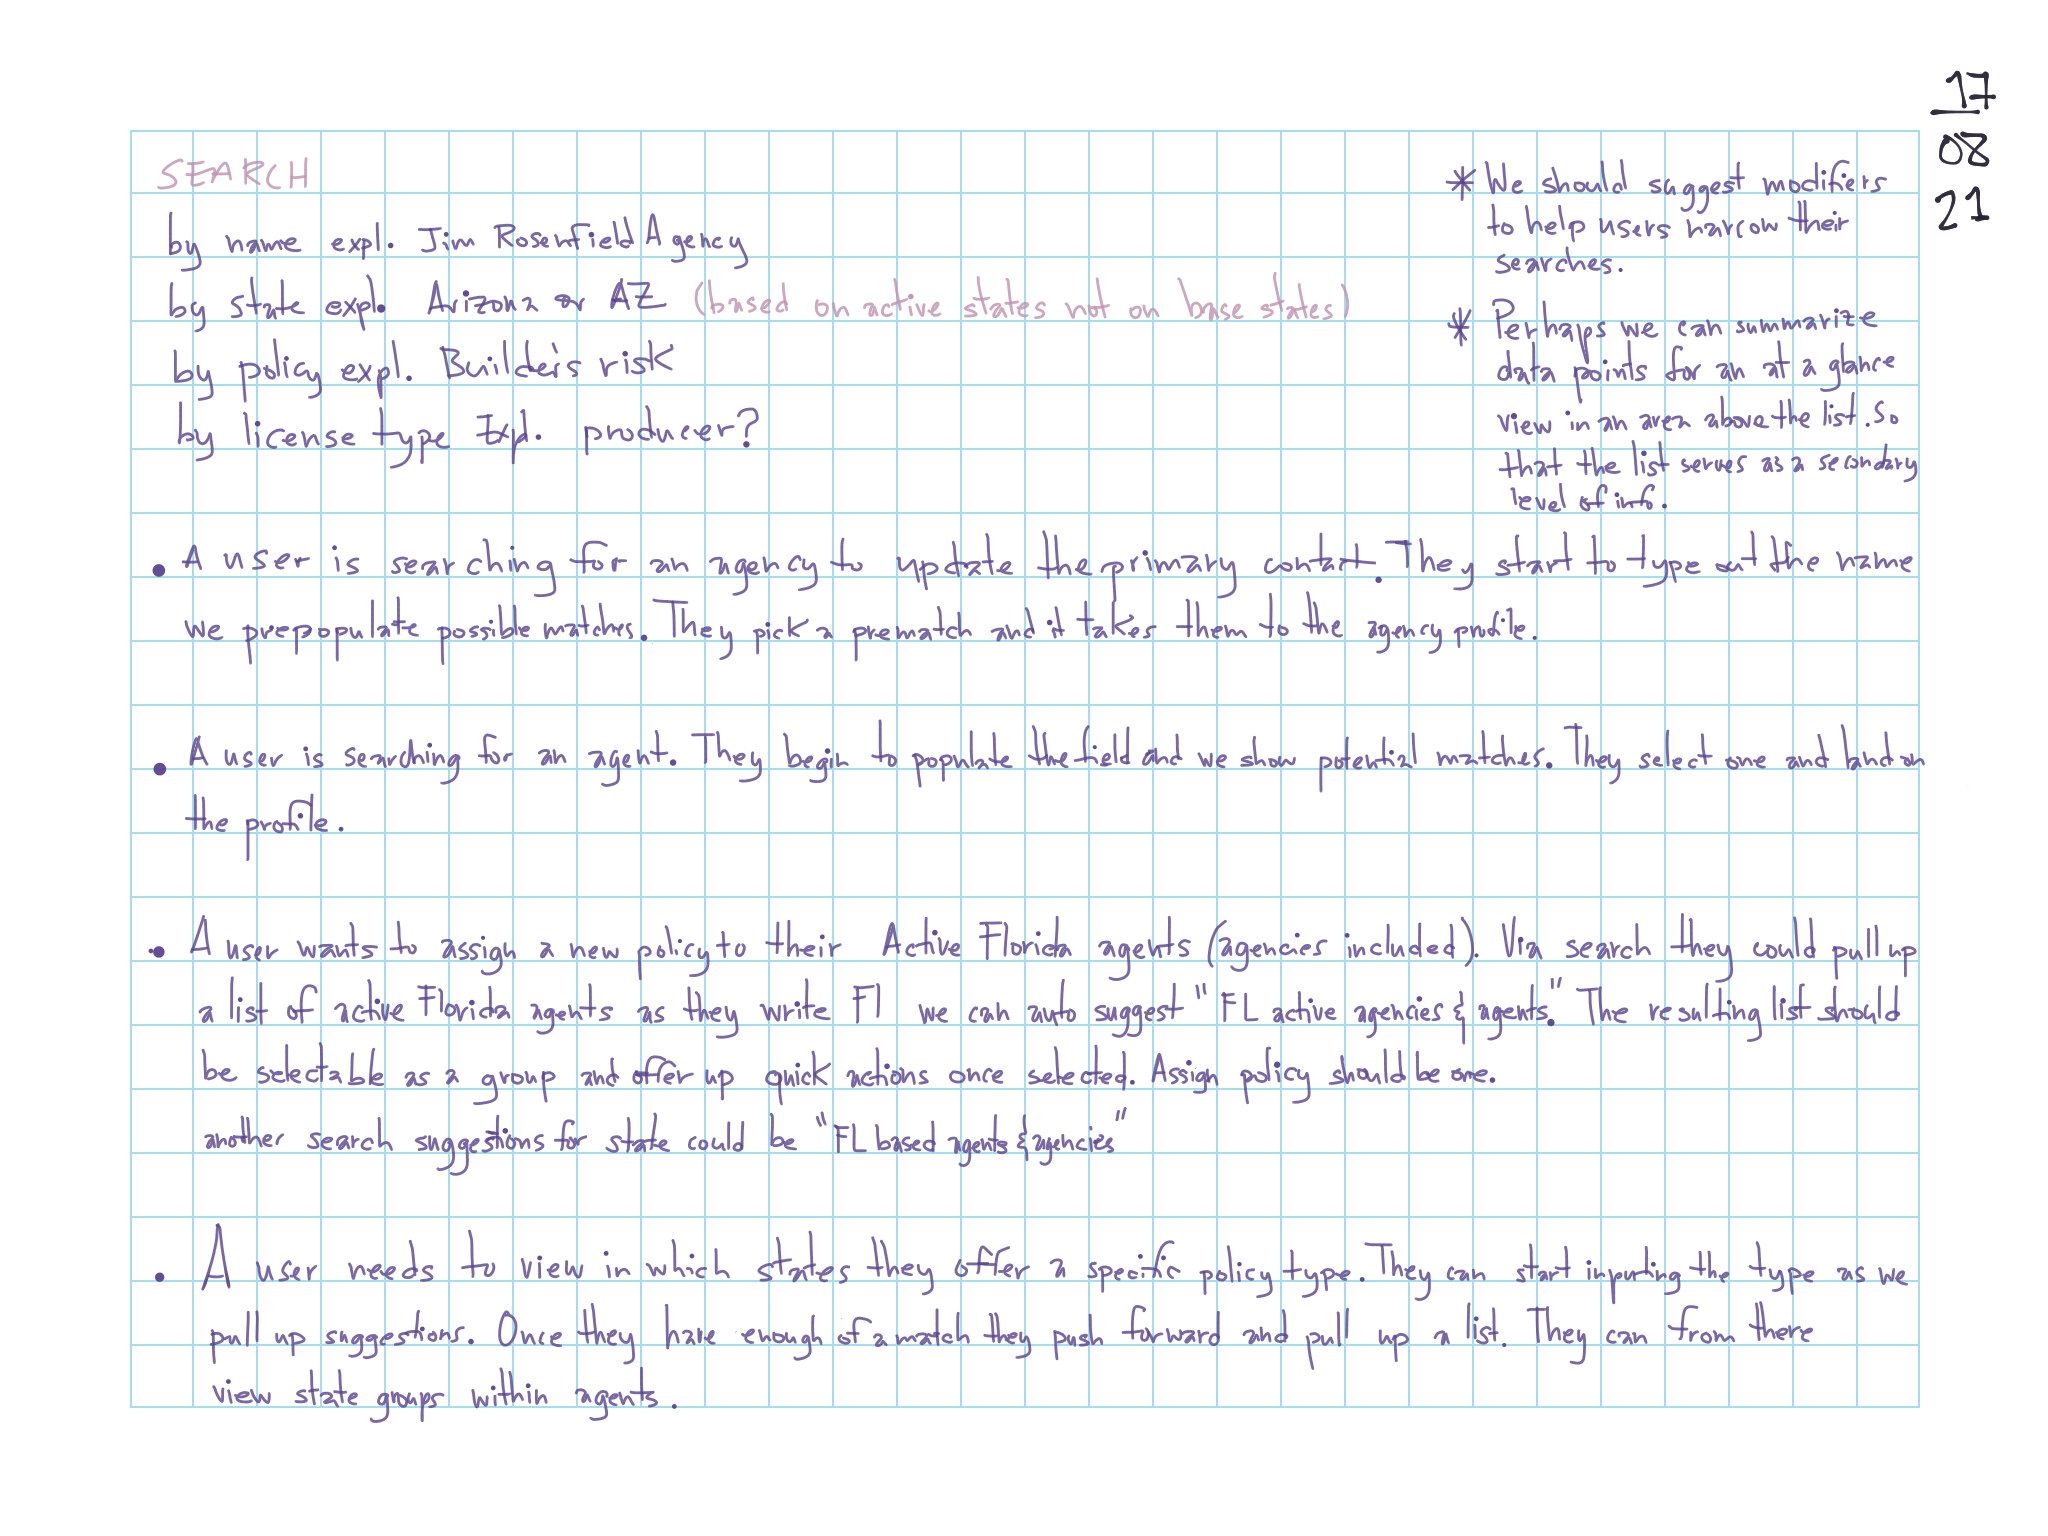 17
08
21
SEARCH
by name expl. Jim Rosenfield Agency
by state expl. Arizona or AZ (based on active states not on base states)
by policy expl. Builde's risk
by license type Expl. producer?
* We should suggest modifiers
to help users narrow their
searches.
* Perhaps we can summarize
data points for an at a glance
view in an area above the list. So
that the list serves as a secondary
level of info.
• A user is searching for an agency to update the primary contact. They start to type out the name
we prepopulate possible matches. They pick a prematch and it takes them to the agency profile.
• A user is searching for an agent. They begin to populate the field and we show potential matches. They select one and land on
the profile.
• A user wants to assign a new policy to their Active Florida agents (agencies included). Via search they could pull up
a list of active Florida agents as they write Fl we can auto suggest "FL active agencies & agents." The resulting list should
be selectable as a group and offer up quick actions once selected. Assign policy should be one.
another search suggestions for state could be "FL based agents & agencies"
• A user needs to view in which states they offer a specific policy type. They can start inputing the type as we
pull up suggestions. Once they have enough of a match they push forward and pull up a list. They can from there
view state groups within agents.